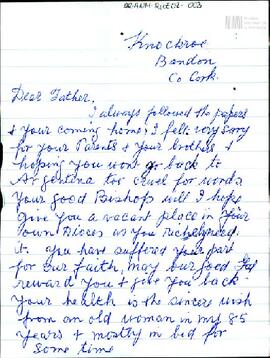 Knockroe
Bandon
Co Cork.
Dear Father,
I always followed the papers
& your coming home; I felt very sorry
for your Parents & your brothers &
hoping you wont go back to
Argentina too cruel for words
Your good Bishops will I hope
give you a vacant place in Your
own Dioces as you
it. you have suffered your part
for our faith, may our good God
reward you & give you back
your health is the sincere wish
from an old woman in my 85
years & mostly in bed for
some time